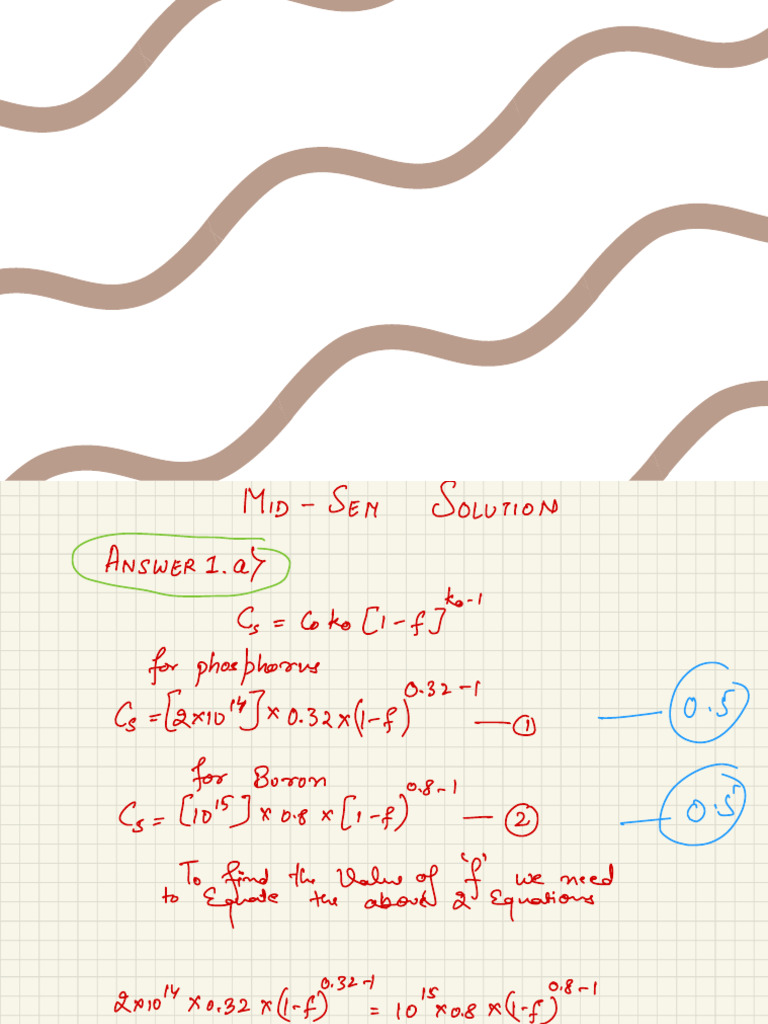 MID - SEM SOLUTION
ANSWER 1. a)
Cs = C0 k0 [1-f]^k0-1
for phosphorus
Cs = [2×10^14] × 0.32 × (1-f)^0.32-1 — ① — 0.5
for Boron
Cs = [10^15] × 0.8 × [1-f)^0.8-1 — ② — 0.5
To find the Value of 'f' we need
to Equate the above 2 Equations
2×10^14 × 0.32 × (1-f)^0.32-1 = 10^15 × 0.8 × (1-f)^0.8-1